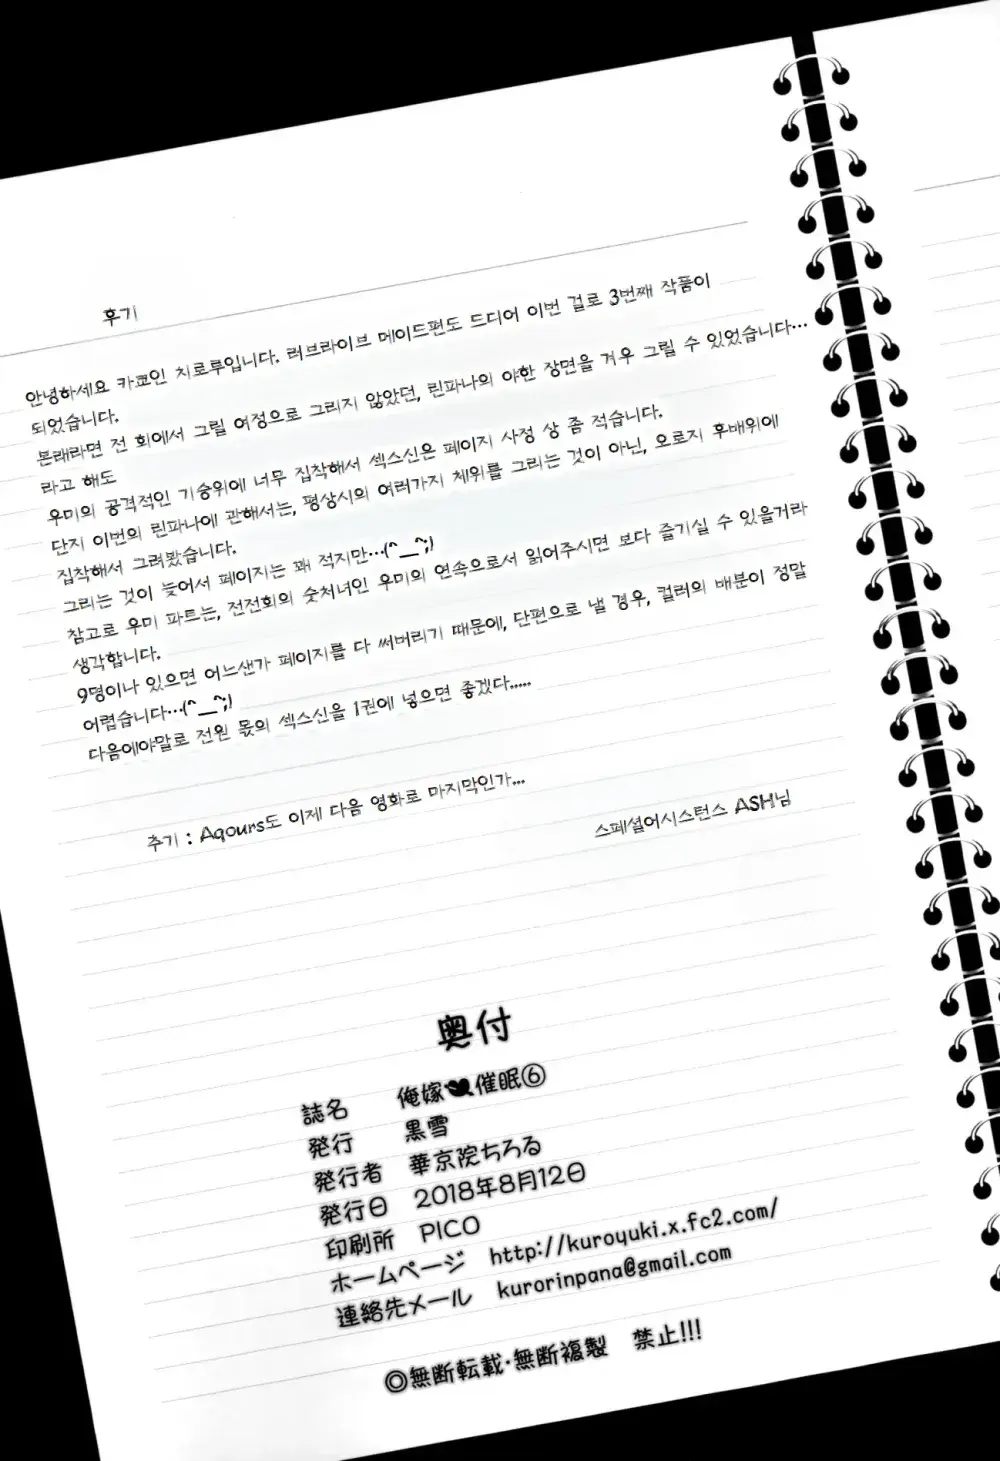 후기
안녕하세요 카쿄인 치로루입니다. 러브라이브 메이드편도 드디어 이번 걸로 3번째 작품이
되었습니다.
본래라면 전 회에서 그릴 예정으로 그리지 않았던, 린파나의 야한 장면을 겨우 그릴 수 있었습니다…
라고 해도
우미의 공격적인 기승위에 너무 집착해서 섹스신은 페이지 사정 상 좀 적습니다.
단지 이번의 린파나에 관해서는, 평상시의 여러가지 체위를 그리는 것이 아닌, 오로지 후배위에
집착해서 그려봤습니다.
그리는 것이 늦어서 페이지는 꽤 적지만…(^__^;)
참고로 우미 파트는, 전전회의 숫처녀인 우미의 연속으로서 읽어주시면 보다 즐기실 수 있을거라
생각합니다.
9명이나 있으면 어느샌가 페이지를 다 써버리기 때문에, 단편으로 낼 경우, 컬러의 배분이 정말
어렵습니다…(^__^;)
다음에야말로 전원 몫의 섹스신을 1권에 넣으면 좋겠다.....
추기 : Aqours도 이제 다음 영화로 마지막인가...
스페셜어시스턴스 ASH님
奥付
誌名 俺嫁催眠⑥
発行 黒雪
発行者 華京院ちろる
発行日 2018年8月12日
印刷所 PICO
ホームページ http://kuroyuki.x.fc2.com/
連絡先メール kurorinpana@gmail.com
◎無断転載・無断複製 禁止!!!